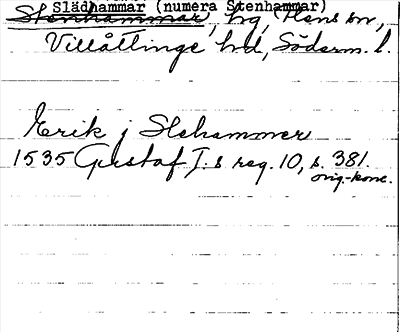 Slädhammar (numera Stenhammar)
Stenhammar, hg, Flens sn,
Villåttinge hd, Söderm. l.
Erik j Slehammer
1535 Gustaf I:s reg. 10, s. 381.
orig.-konc.